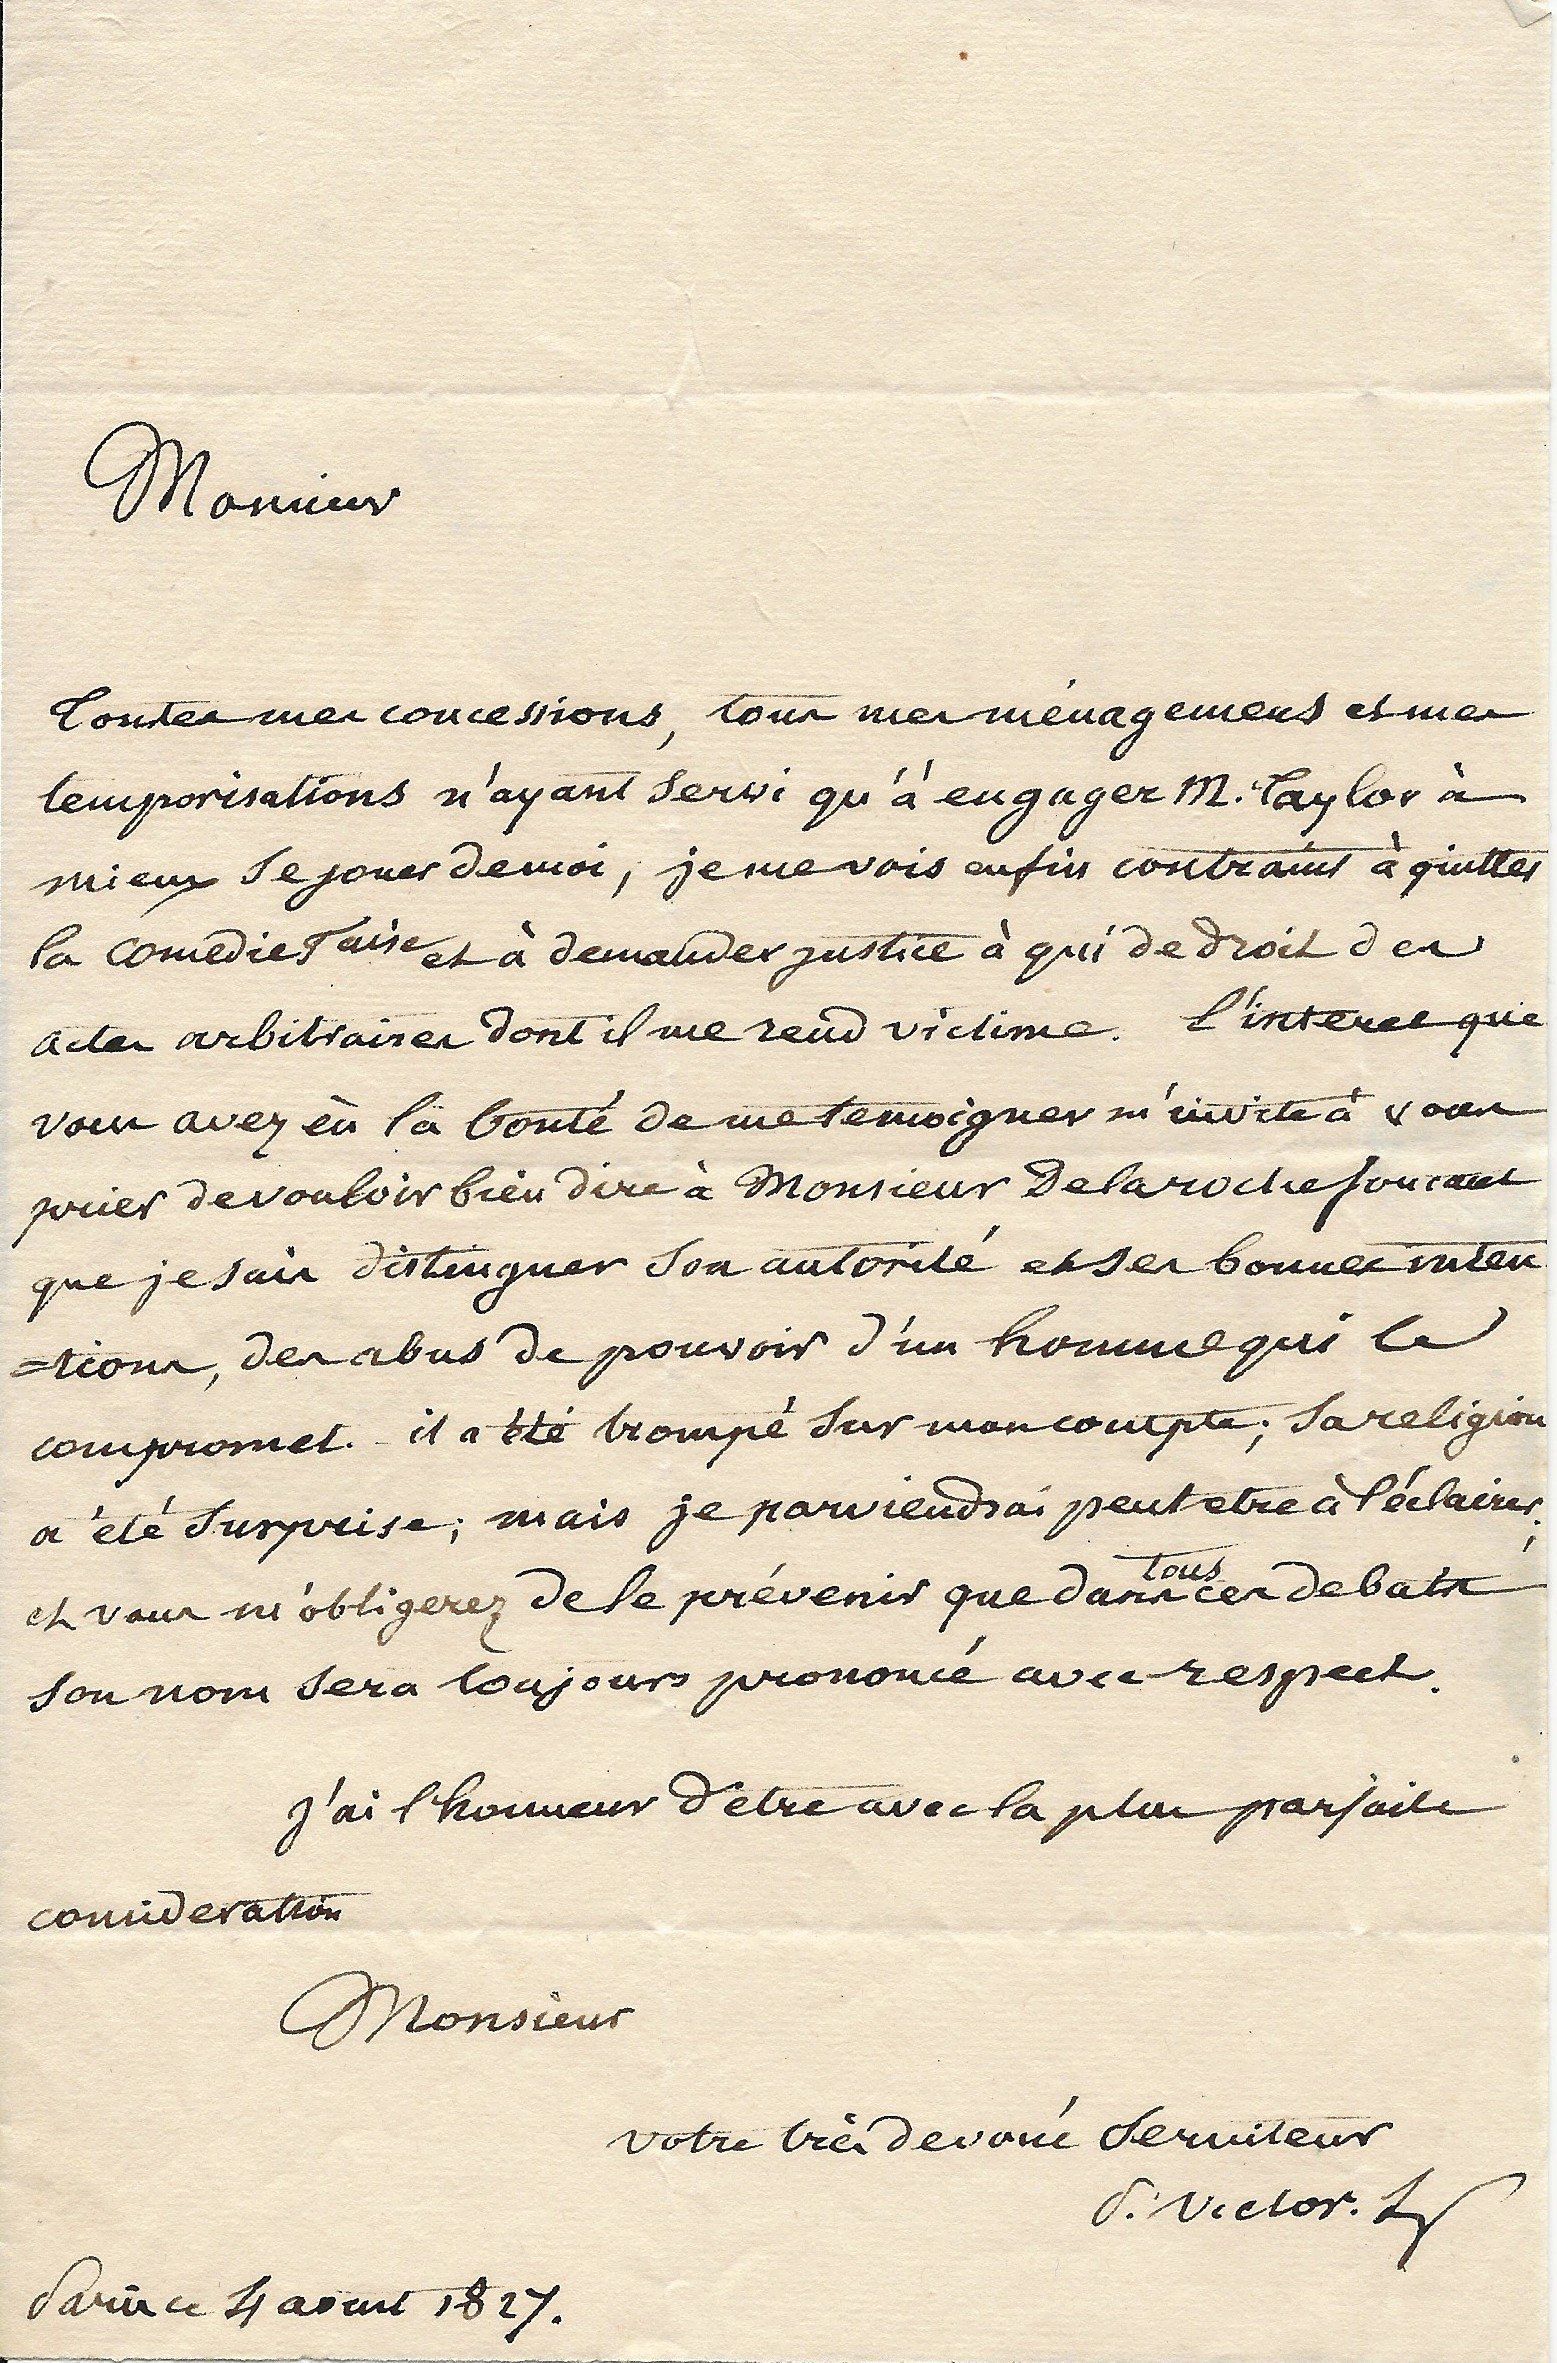 Monsieur
Toutes mes concessions, tous mes ménagemens et mes
temporisations n'ayant servi qu'à engager M. Taylor à
mieux se jouer de moi, je me vois enfin contraint à quitter
la comedie f.aise et à demander justice à qui de droit des
actes arbitraires dont il me rend victime. L'interet que
vous avez eù la bonté de me temoigner m'invite à vous
prier de vouloir bien dire à Monsieur Delarochefoucaut
que je sais distinguer son autorité et ses bonnes inten
=tions, des abus de pouvoir d'un homme qui le
compromet. il a été trompé sur mon compte; sa religion
a été surprise; mais je parviendrai peut etre à l'éclairer;
et vous m'obligerez de le prévenir que dans tous ces debats
son nom sera toujours prononcé avec respect.
J'ai l'honneur d'etre avec la plus parfaite
consideration
Monsieur
votre très devoué serviteur
P. Victor.
Paris ce 4 aout 1827.